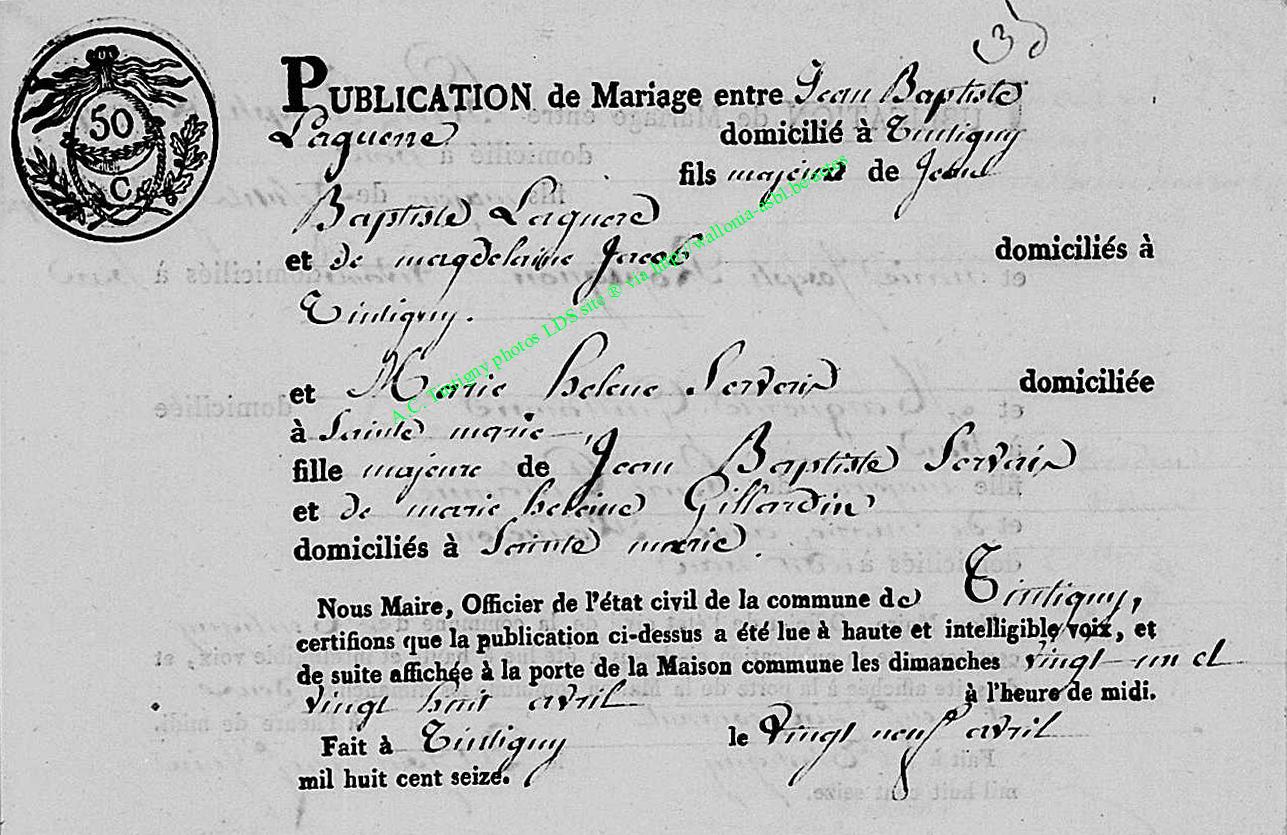 3
50
C
PUBLICATION de Mariage entre Jean Baptiste
Laguerre domicilié à Tintigny
fils majeur de Jean
Baptiste Laguere
et de magdelaine Jacob domiciliés à
Tintigny.
et Marie helene Servais domiciliée
à Sainte marie
fille majeure de Jean Baptiste Servais
et de marie heleine Gillardin
domiciliés à Sainte marie.
Nous Maire, Officier de l'état civil de la commune de Tintigny,
certifions que la publication ci-dessus a été lue à haute et intelligible voix, et
de suite affichée à la porte de la Maison commune les dimanches vingt-un et
vingt huit avril à l'heure de midi.
Fait à Tintigny le vingt neuf avril
mil huit cent seize.
A.C. Tintigny photos LDS site ® via http://wallonia-asbl.be/actes